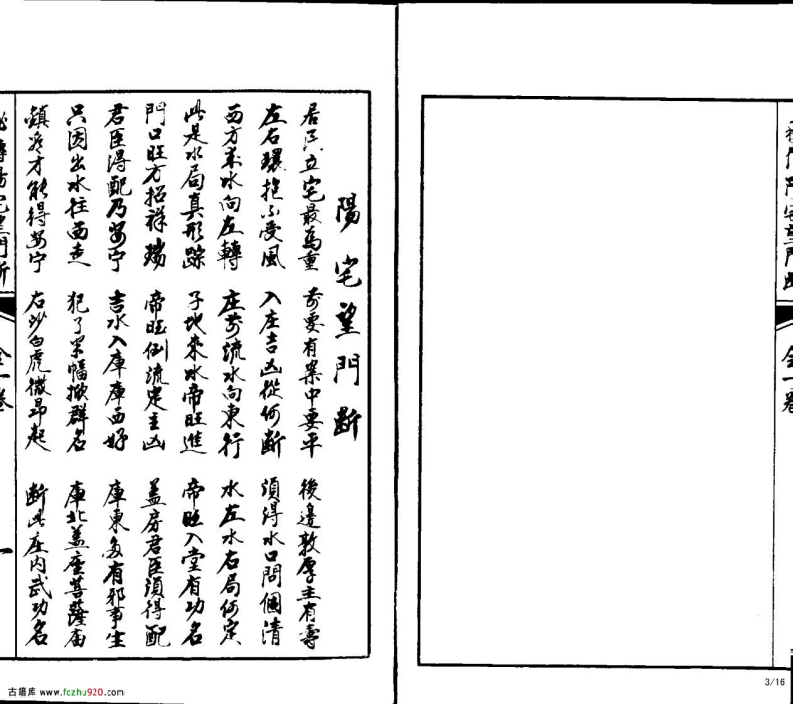 陽宅望門断
居民立宅最為重 前要有案中要平 後邊敦厚主有壽
左右環抱不受風 入庄吉凶從何断 須得水口問個清
西方來水向左轉 庄前流水向東行 水左水右局何定
此是水局真形踪 子地來水帝旺進 帝旺入堂有功名
門口旺方招祥瑞 帝旺倒流定主凶 盖房君臣須得配
君臣得配乃安宁 吉水入庫庫西好 庫東多有邪事生
只因出水往西走 犯了 掀群名 庫北盖座菩薩庙
鎮 才能得安宁 右沙白虎微昂起 断此庄内武功名
秘傳陽宅望門断
全一卷
一
古籍库 www.fczhu920.com
全一卷
3/16